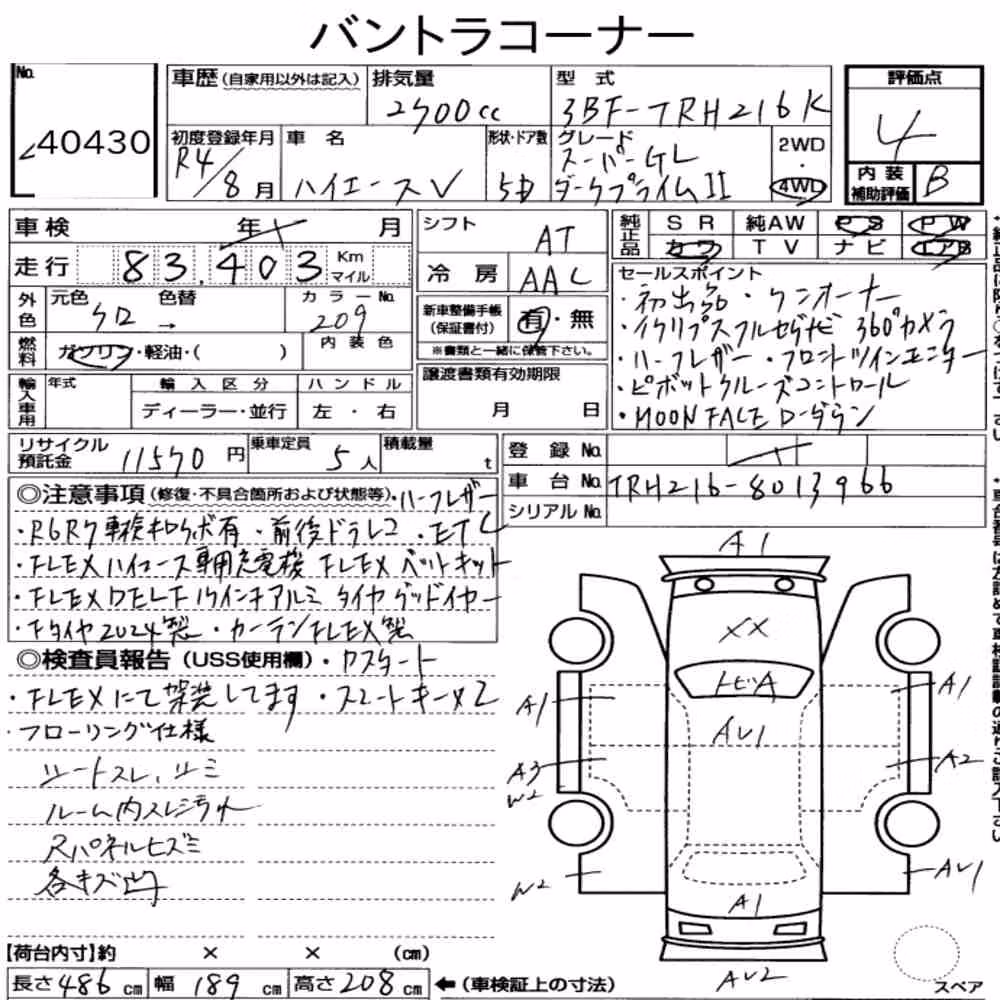 バントラコーナー
No. 40430
車歴 (自家用以外は記入)
排気量 2700cc
型式 3BF-TRH216K
評価点 4
初度登録年月 R4/8月
車名 ハイエースV
形状・ドア数 5D
グレード スーパーGL ダークプライムII
2WD・4WD
内装補助評価 B
車検 年 月
走行 83,403 Km マイル
シフト AT
冷房 AAC
純正品 SR 純AW PS PW
カワ TV ナビ エアB
外色 元色 クロ 色替 → カラーNo. 209
燃料 ガソリン・軽油・( ) 内装色
新車整備手帳(保証書付) 有・無
※書類と一緒に保管下さい。
セールスポイント
・初出品・ワンオーナー
・イクリプスフルセグナビ 360°カメラ
・ハーフレザー・フロントツインモニター
・ビボットクルーズコントロール
・MOON FACE ローダウン
輸入車用 年式 輸入区分 ハンドル
ディーラー・並行 左・右
譲渡書類有効期限
月 日
リサイクル預託金 11570円
乗車定員 5人
積載量 t
登録No.
車台No. TRH216-8013966
シリアルNo.
◎注意事項(修復・不具合箇所および状態等)・ハーフレザー
・R6R7車検キロク簿有・前後ドラレコ・ETC
・FLEXハイエース専用充電機 FLEXベットキット
・FLEX DELF 17インチアルミ タイヤグッドイヤー
・Fタイヤ2024製・カーテンFLEX製
◎検査員報告(USS使用欄)・Rスカート
・FLEXにて架装してます・スマートキー×2
・フローリング仕様
シートスレ、シミ
ルーム内スレ
Rパネルヒズミ
各キズ凹
A1
XX
トビA
AU1
A1
A1
A3
W2
A2
W2
AU1
A1
AU2
スペア
【荷台内寸】約 × × (cm)
長さ486cm 幅189cm 高さ208cm ←(車検証上の寸法)